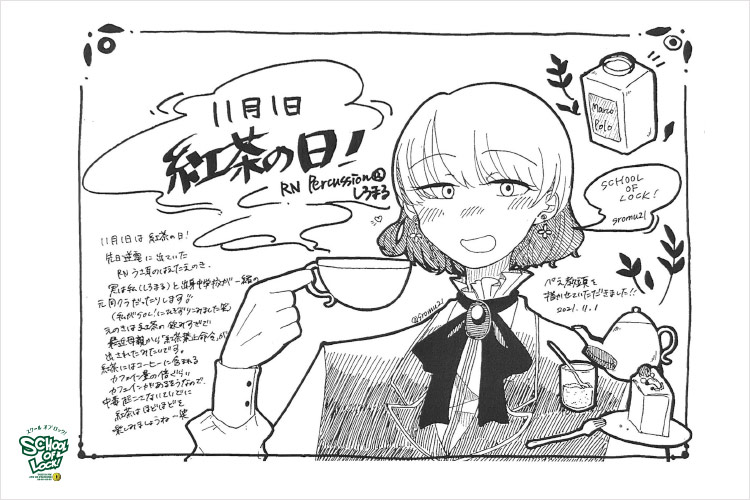 11月1日
紅茶の日!
RN Percussion
しろまる
Marco
Polo
SCHOOL
OF
LOCK!
sromu21
11月1日は 紅茶の日!
先日逆電に出ていた
RN
君は私(しろまる)と出身中学校が一緒の
元同クラだったりします
(私がSOL!にひきずりこみました笑)
えのきは紅茶の飲みすぎで
最近母親から「紅茶禁止命令」が
出されたみたいです。
紅茶にはコーヒーに含まれる
カフェイン量の倍ぐらい
カフェインがあるそうなので、
中毒起こさないていどに
紅茶はほどほどを
楽しみましょうね〜笑
@sromu21
ぺえ教頭を
描かせていただきました!!
2021.11.1
スクール オブ ロック!
SCHOOL
OF
LOCK!